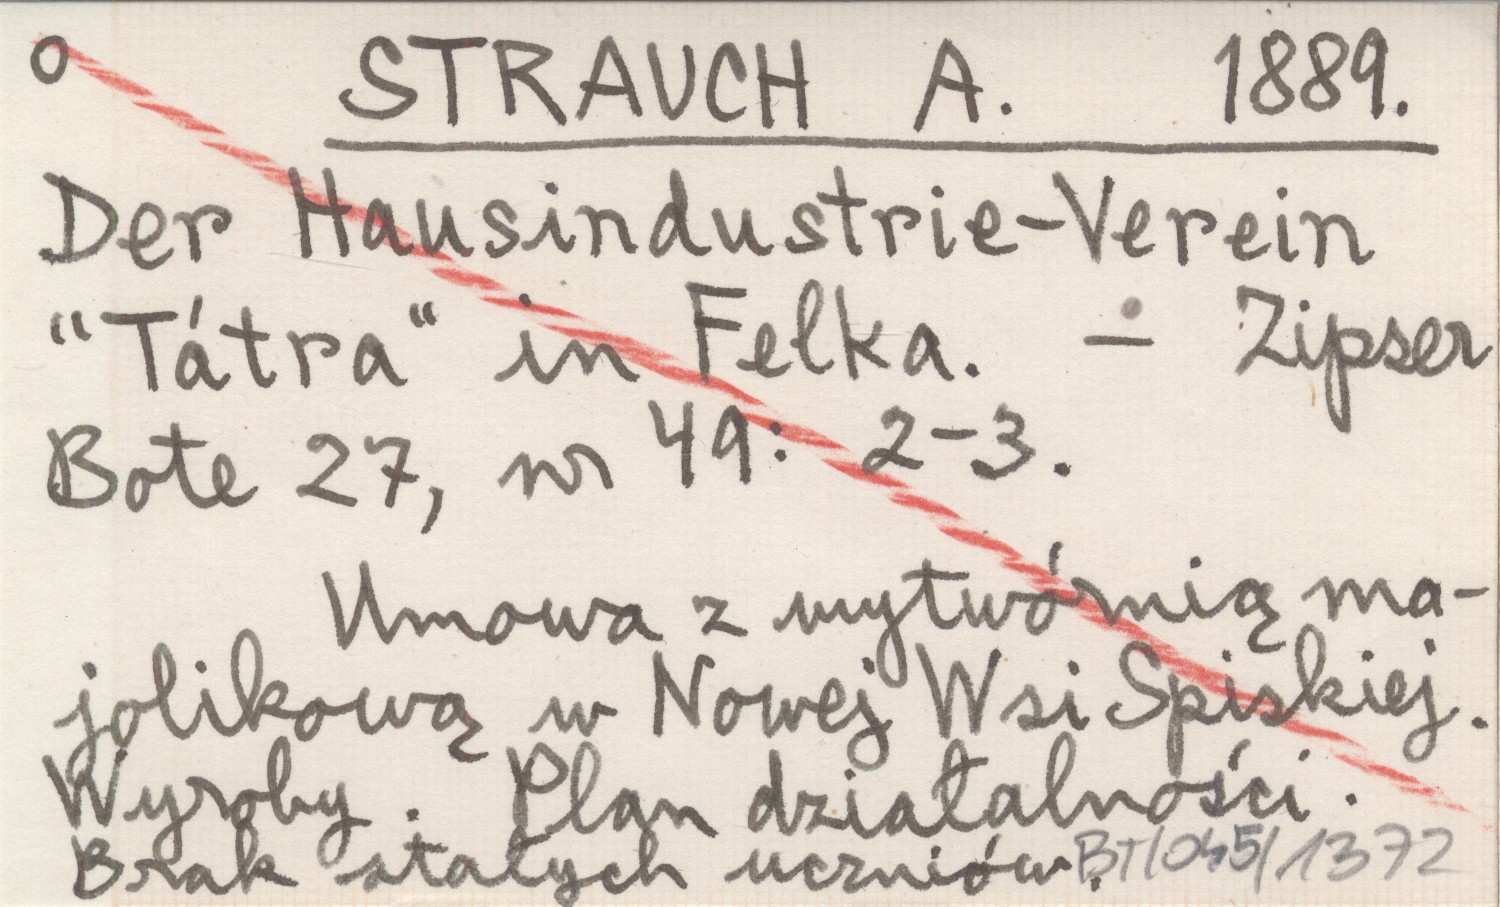 o STRAUCH A. 1889.
Der Hausindustrie-Verein
"Tátra" in Felka. — Zipser
Bote 27, nr 49: 2-3.
Umowa z wytwórnią ma-
jolikową w Nowej Wsi Spiskiej.
Wyroby. Plan działalności.
Brak stałych uczniów.
BT/045/1372